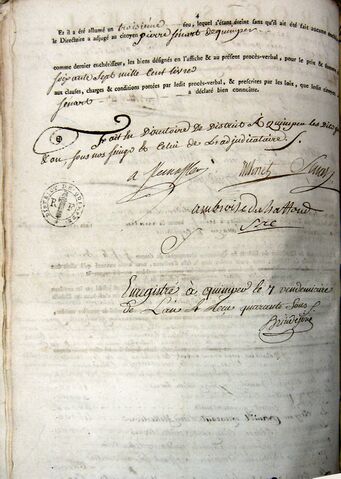 Et il a été allumé un troisième feu, lequel s'étant éteint sans qu'il ait été fait aucune
le Directoire a adjugé au citoyen pierre Simart de quimper
comme dernier enchérisseur, les biens désignés en l'affiche & au présent procès-verbal, pour le prix &
soixante Sept mille Cent livres
aux clauses, charges & conditions portées par ledit procès-verbal, & prescrites par les loix, que ledit citoyen
Simart a déclaré bien connoître.
fait au Directoire de District A quimper les dits jour
et an, sous nos seings & Celui de L'adjudicataire
Simart
ambroise du haffond
Sre
Enregistré à quimper le 7 vendemiaire
de L'an 4 Reçu quarante Sous